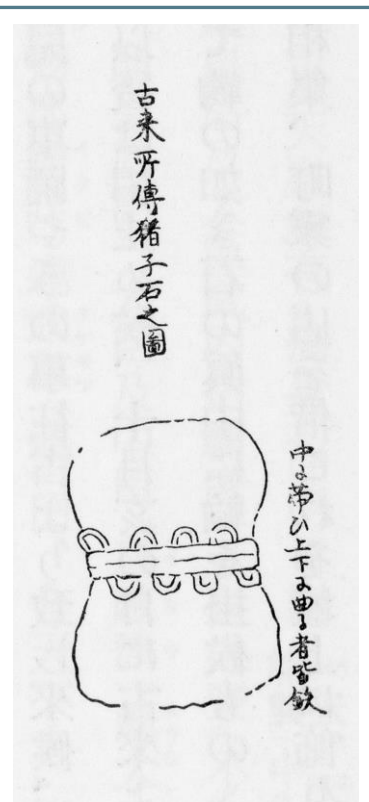 古来所傳猪子石之圖
中ニ帯ひ上下ニ曲る者皆欽